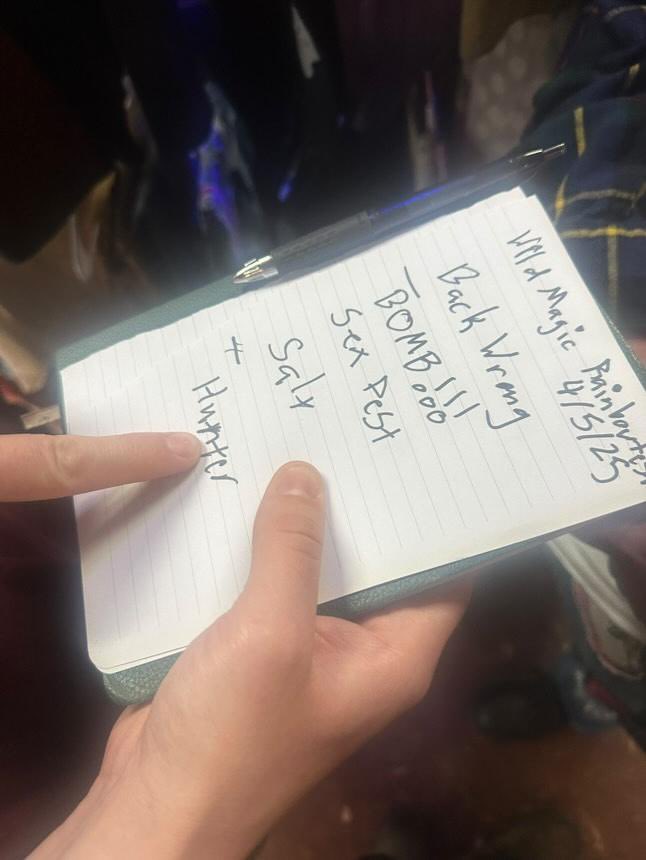 Wild Magic
4/5/25
Back Wrong
- BOMB!!!
Sex Pest
Salt
+ Hunter